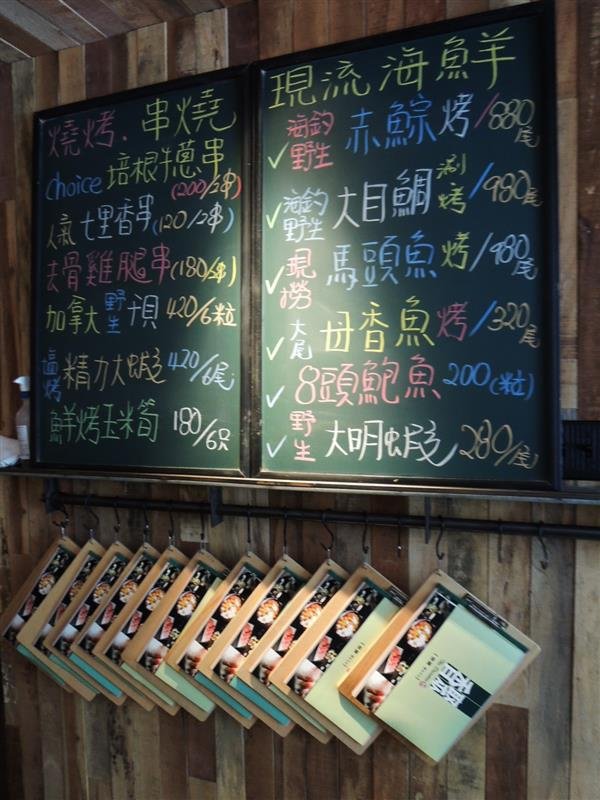 燒烤．串燒
Choice 培根牛蔥串
(200/2串)
人氣 七里香串(120/2串)
去骨雞腿串(180/2串)
加拿大野生干貝 420/6粒
鹽烤 精力大蝦 420/6尾
鮮烤玉米筍 180/6只
現流海鮮
✓海釣野生 赤鯮 烤/880尾
✓海釣野生 大目鯛 涮烤/980尾
✓現撈 馬頭魚 烤/980尾
✓大尾 母香魚 烤/320尾
✓8頭鮑魚 200(粒)
✓野生 大明蝦 280/尾